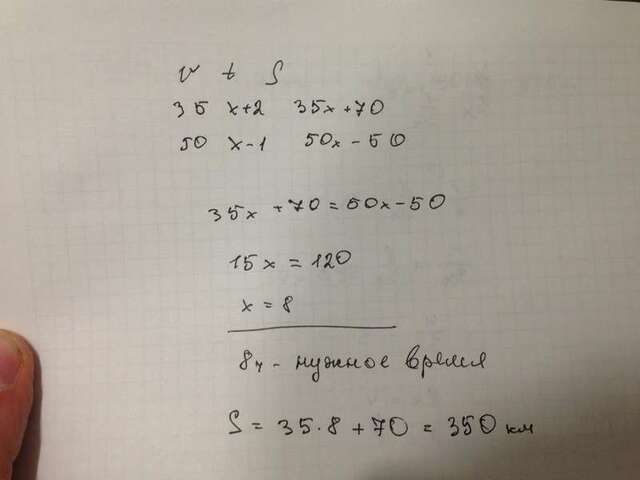 v t S
35 x+2 35x+70
50 x-1 50x-50
35x +70=50x-50
15x = 120
x = 8
8ч - нужное время
S = 35·8+70 = 350 км